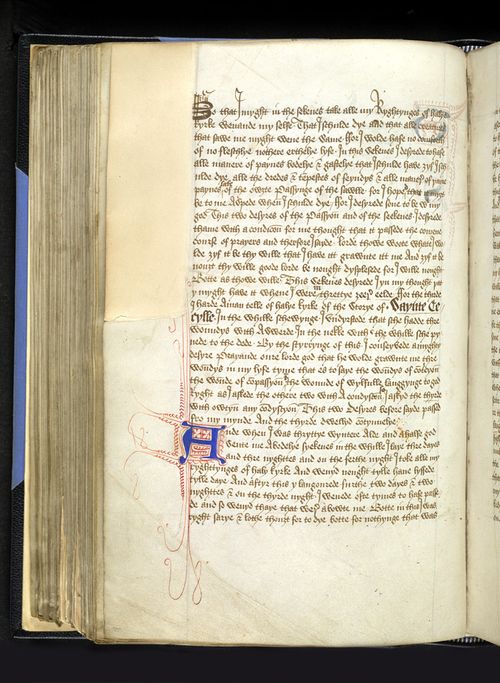 So that I myght in the sekenes take alle my Ryghtynges of halye
kyrke wenande my selfe that I schulde dye and that alle
that sawe me myght wene the same ffor I wolde hafe no comforth
of no fleschlye nothere erthelye lyfe In this sekenes I desyrede to hafe
alle manere of paynes bodelye & gastelye that I schulde have ȝyf I sch
ulde dye alle the dredes & tempestes of feyndys & alle manere of
paynes safe of the owte Passynge of the sawlle for I hope that
be to me A spede when I schulde dye ffor I desyrede sone to be w my
god This two desyres of the Passyon and of the seekenes I desyrede
thame with a condicion for me thought that it passede the comene
course of prayers and therfore I sayde lorde thowe woote whate I wo
lde ȝyf it be thy wille that I have itt grawnte itt me And ȝyf it be
nouȝt thy wille goode lorde be nought dysplesede for I wille nought
Botte as thowe wille This sekenes desyrede I yn my thought yt
y myght have it whene I were threttye ȝeere eelde ffor the thirde
I harde A man telle of halye kyrke of the Storye of Saynte Ce
cylle In the whilke schewynge I vndyrstode that sche hadde thre
wonndys with A swerde In the nekke with the whilke sche py
nede to the dede By the styrrynge of this I conseyvede A myghty
desyre Prayande oure lorde god that he wolde grawnte me thre
wonndys in my lyfe tyme that es to saye the wonnde of contricyon
the wonnde of compassyon & the wonnde of wylfulle langgynge to god
Ryght as I askede the othere two with A condyscyon I askyd the thyrde
with owtyn any condyscyon This two desyres before sayde passed
fro my mynde And the thyrde dwelled contynuelye
Ande when I was thryttye wyntere Alde and A halfe god
sente me A bodelye syekenes in the whilke I laye thre dayes
and thre nyghttes and on the ferthe nyght I toke alle my
ryghttynges of haly kyrke And wenyd nought tylle have lyffede
tylle daye And aftyr this y langourede furthe two dayes & two
nyghttes & on the thyrde nyght I wenede ofte tymes to hafe passe
de and so wenyd thaye that were abowte me Botte in this I was
ryght sarye & lothe thouȝt for to dye botte for nothynge that was